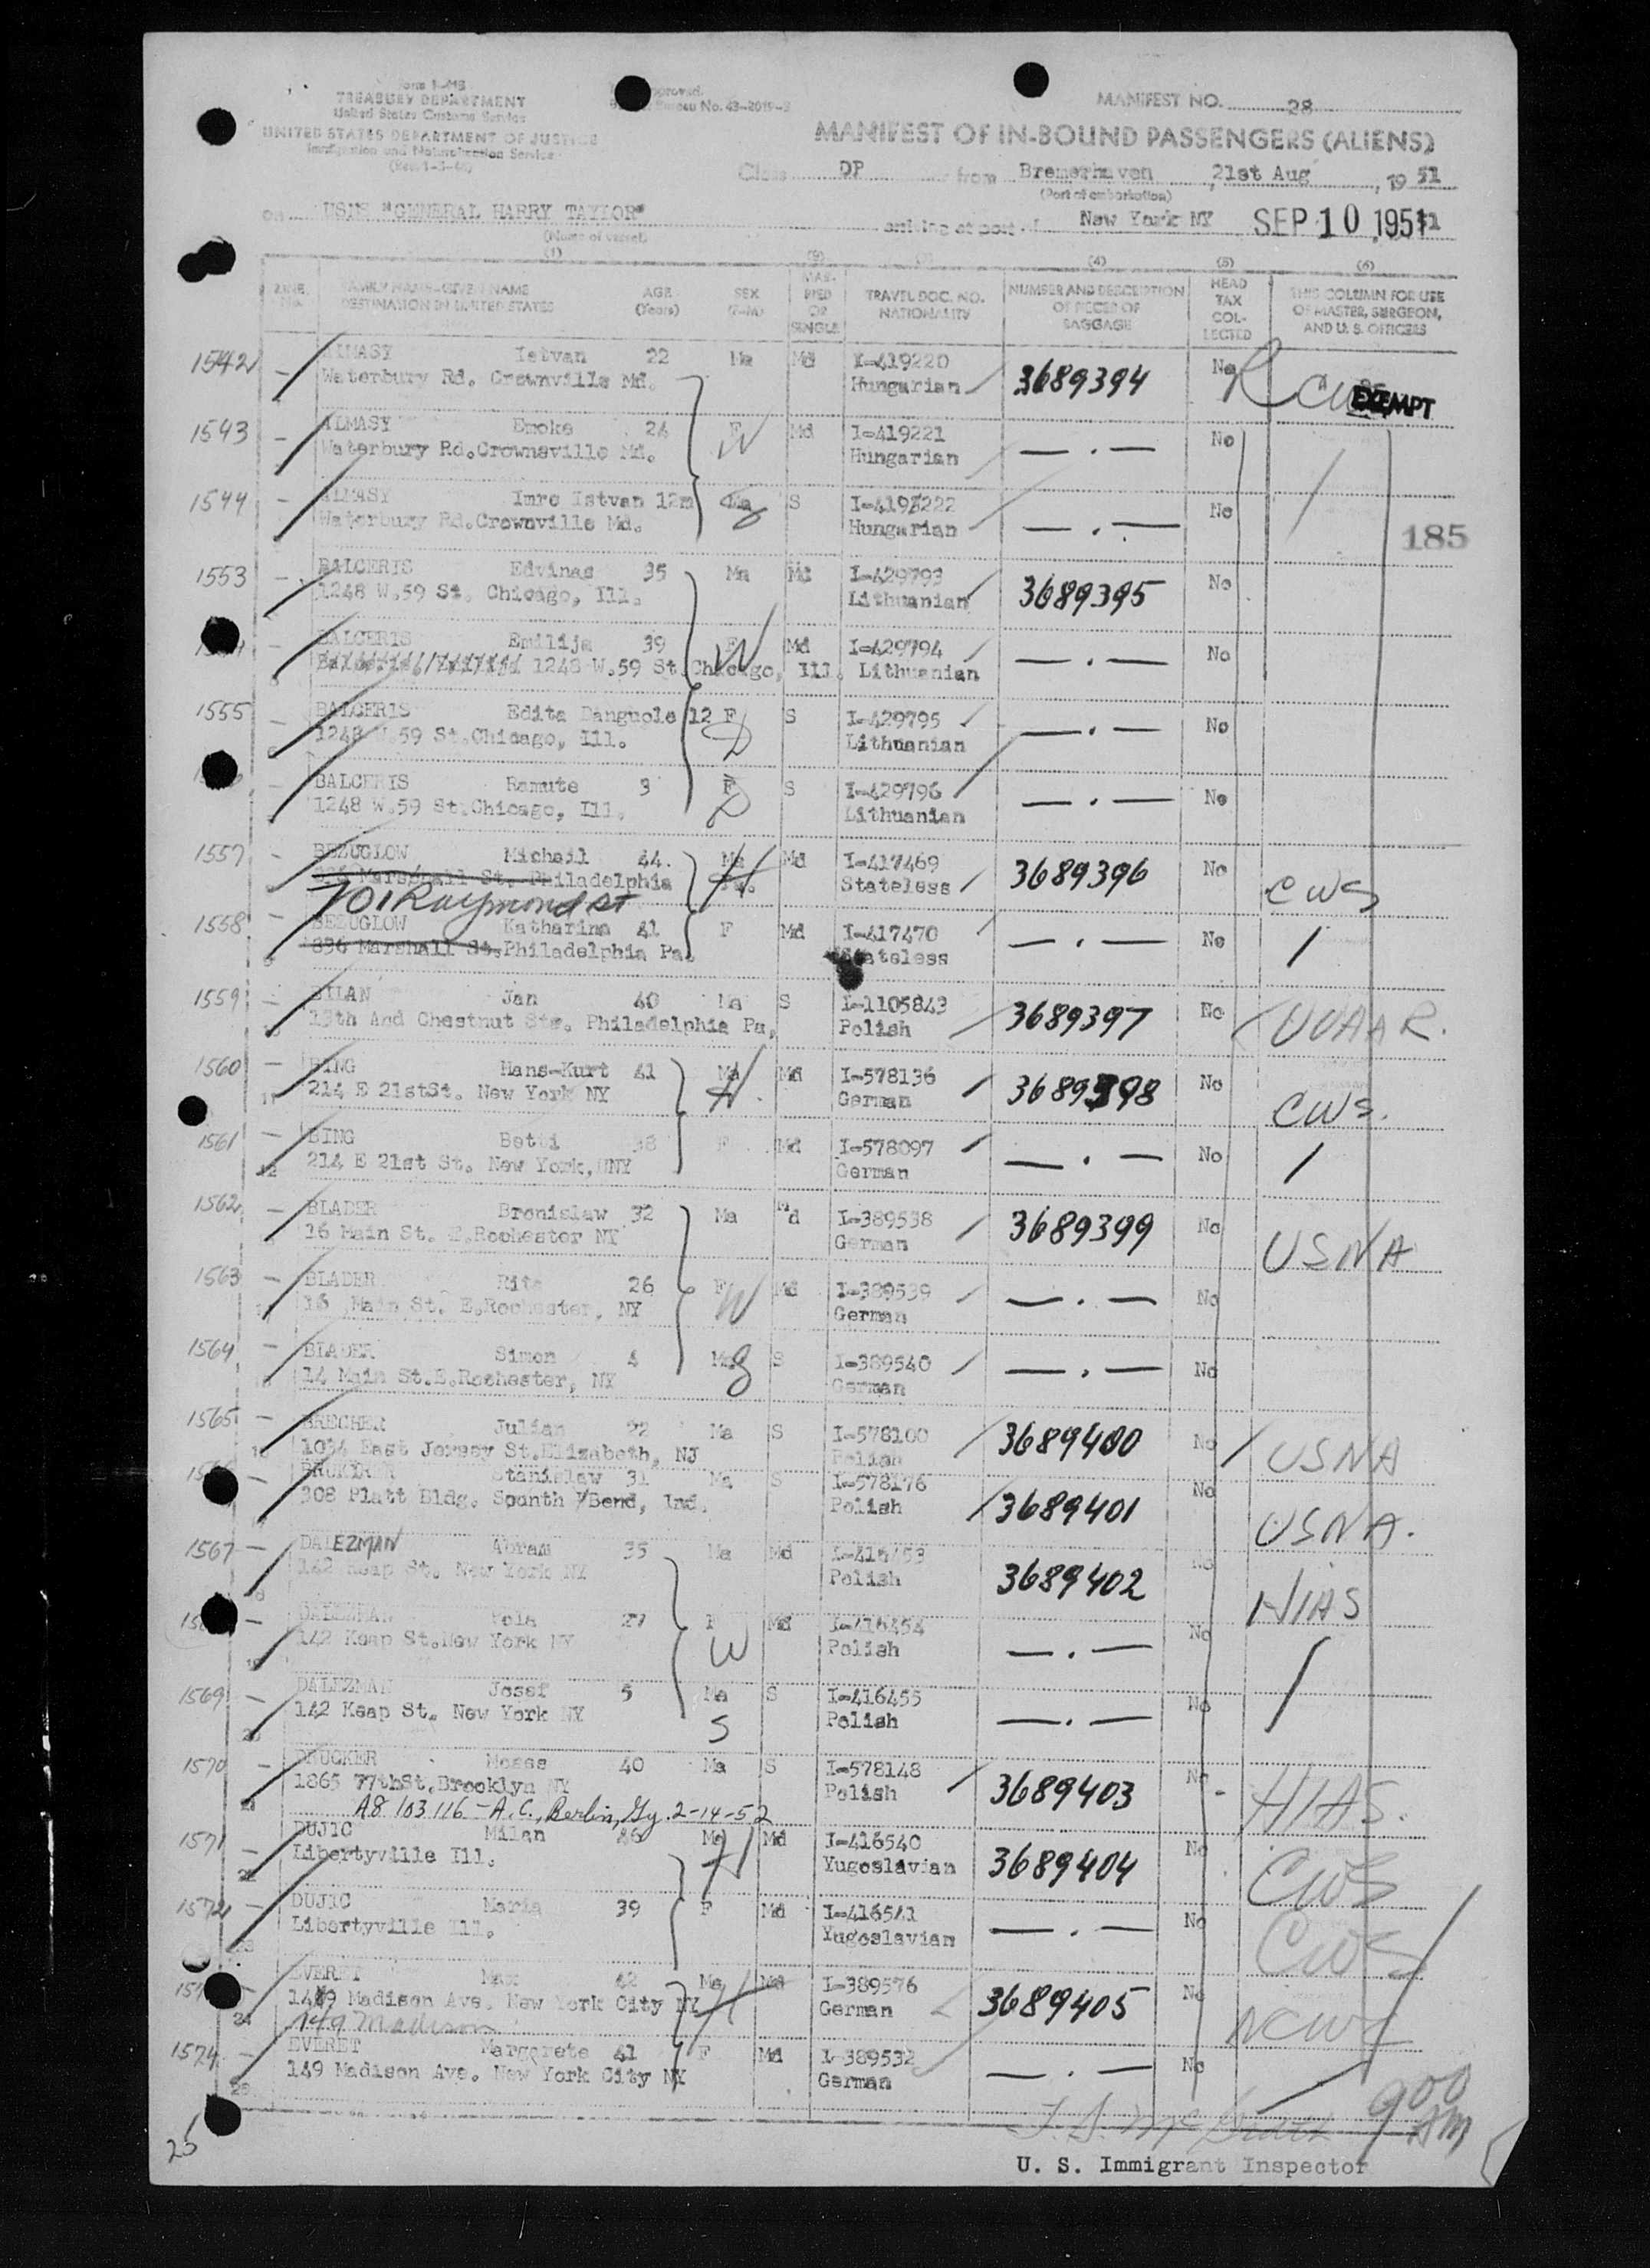 Form I-418
TREASURY DEPARTMENT
United States Customs Service
UNITED STATES DEPARTMENT OF JUSTICE
Immigration and Naturalization Service
Approved.
Bureau No. 43-2019-3
MANIFEST NO. 28
MANIFEST OF IN-BOUND PASSENGERS (ALIENS)
Class DP from Bremerhaven, 21st Aug, 19 51
(Port of embarkation)
on USNS "GENERAL HARRY TAYLOR" arriving at port of New York NY SEP 10 1951
(Name of vessel)
(1) (2) (3) (4) (5) (6)
LINE No. FAMILY NAME-GIVEN NAME DESTINATION IN UNITED STATES AGE (Years) SEX (F-M) MARRIED OR SINGLE TRAVEL DOC. NO. NATIONALITY NUMBER AND DESCRIPTION OF PIECES OF BAGGAGE HEAD TAX COLLECTED THIS COLUMN FOR USE OF MASTER, SURGEON, AND U. S. OFFICERS
1542 ALMASY Istvan 22 Ma Md I-419220 3689394 No
Waterbury Rd. Crownville Md. Hungarian EXEMPT
1543 ALMASY Emoke 24 F Md I-419221 — . — No
Waterbury Rd.Crownsville Md. W Hungarian
1544 ALMASY Imre Istvan 12m Ma S I-419222 — . — No
Waterbury Rd.Crownville Md. Hungarian
185
1553 BALCERIS Edvinas 35 Ma Md I-429793 3689395 No
1248 W.59 St. Chicago, Ill. Lithuanian
BALCERIS Emilija 39 F Md I-429794 — . — No
1248 W.59 St.Chicago, Ill. W Lithuanian
1555 BALCERIS Edita Danguole 12 F S I-429795 — . — No
1248 W.59 St.Chicago, Ill. D Lithuanian
BALCERIS Ramute 3 F S I-429796 — . — No
1248 W.59 St.Chicago, Ill. D Lithuanian
1557 BEZUGLOW Michail 44 Ma Md I-417469 3689396 No
Marshall St. Philadelphia Pa. H Stateless CWS
701 Raymond St
1558 BEZUGLOW Katharina 41 F Md I-417470 — . — No
896 Marshall St.Philadelphia Pa. Stateless
1559 BILAN Jan 40 Ma S I-1105843 3689397 No
13th And Chestnut Sts. Philadelphia Pa. Polish UUAAR.
1560 BING Hans-Kurt 41 Ma Md I-578136 3689398 No
214 E 21stSt. New York NY H German CWS.
1561 BING Betti 38 F Md I-578097 — . — No
214 E 21st St. New York, NY German
1562 BLADER Bronislaw 32 Ma Md I-389538 3689399 No
16 Main St. E.Rochester NY German USNA
1563 BLADER Rita 26 F Md I-389539 — . — No
16 Main St. E.Rochester, NY W German
1564 BLADER Simon 4 Ma S I-389540 — . — No
14 Main St.E.Rochester, NY German
1565 BRECHER Julian 22 Ma S I-578100 3689400 No
1034 East Jersey St.Elizabeth, NJ Polish USNA
Stanislaw 31 Ma S I-578176 3689401 No
308 Platt Bldg. Sounth Bend, Ind. Polish USNA.
1567 DALEZMAN Abram 35 Ma Md 3689402 No
142 Keap St. New York NY Polish HIAS
DALEZMAN 27 F Md I-416454 — . — No
142 Keap St.New York NY W Polish
1569 DALEZMAN Josef 5 Ma S I-416455 — . — No
142 Keap St. New York NY S Polish
1570 DRUCKER Moses 40 Ma S I-578148 3689403 No
1865 77thSt.Brooklyn NY Polish HIAS.
A8 103 116 - A.C., Berlin, Gy. 2-14-52
1571 DUJIC Milan 46 Ma Md I-416540 3689404 No
Libertyville Ill. H Yugoslavian CWS
1572 DUJIC Maria 39 F Md I-416541 — . — No
Libertyville Ill. Yugoslavian CWS
EVERET Max 42 Ma Md I-389576 3689405 No
Madison Ave. New York City NY H German NCWC
149 Madison
1574 EVERET Margarete 41 F Md I-389532 — . — No
149 Madison Ave. New York City NY German
900 AM
25
U. S. Immigrant Inspector